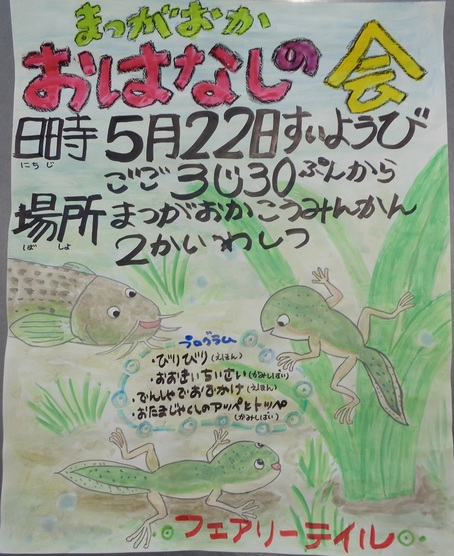 まつがおか
おはなしの会
日時 5月22日すいようび
にちじ
ごご3じ30ぷんから
場所 まつがおかこうみんかん
ばしょ
2かいわしつ
プログラム
・びりびり(えほん)
・おおきいちいさい(かみしばい)
・でんしゃでおでかけ(えほん)
・おたまじゃくしのアッパとトッペ
(かみしばい)
フェアリーテイル